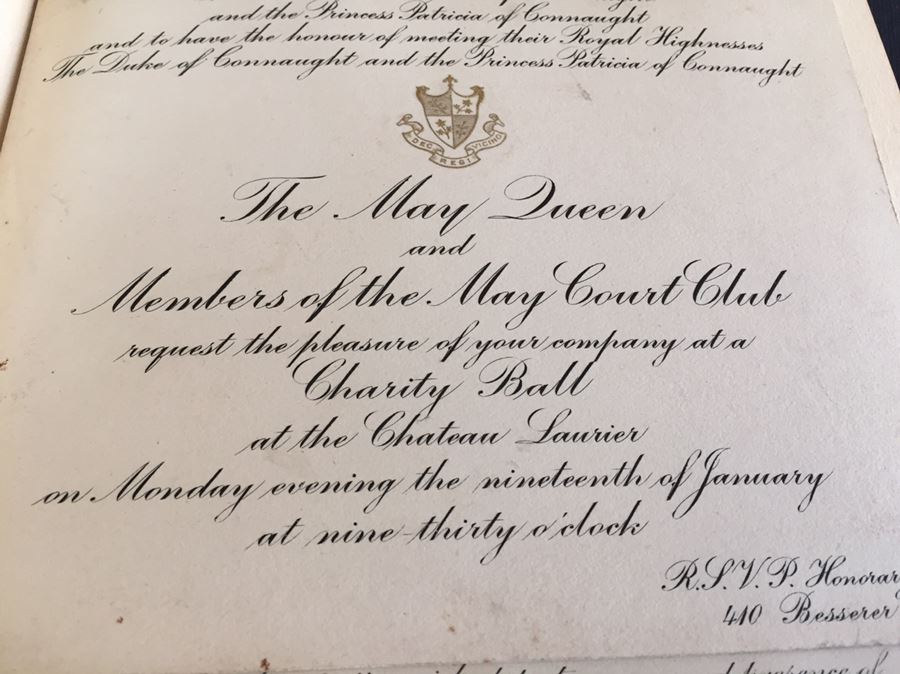 and the Princess Patricia of Connaught
and to have the honour of meeting their Royal Highnesses
The Duke of Connaught and the Princess Patricia of Connaught
DEC REGI VICINO
The May Queen
and
Members of the May Court Club
request the pleasure of your company at a
Charity Ball
at the Chateau Laurier
on Monday evening the nineteenth of January
at nine-thirty o'clock
R.S.V.P. Honorary
410 Besserer
of